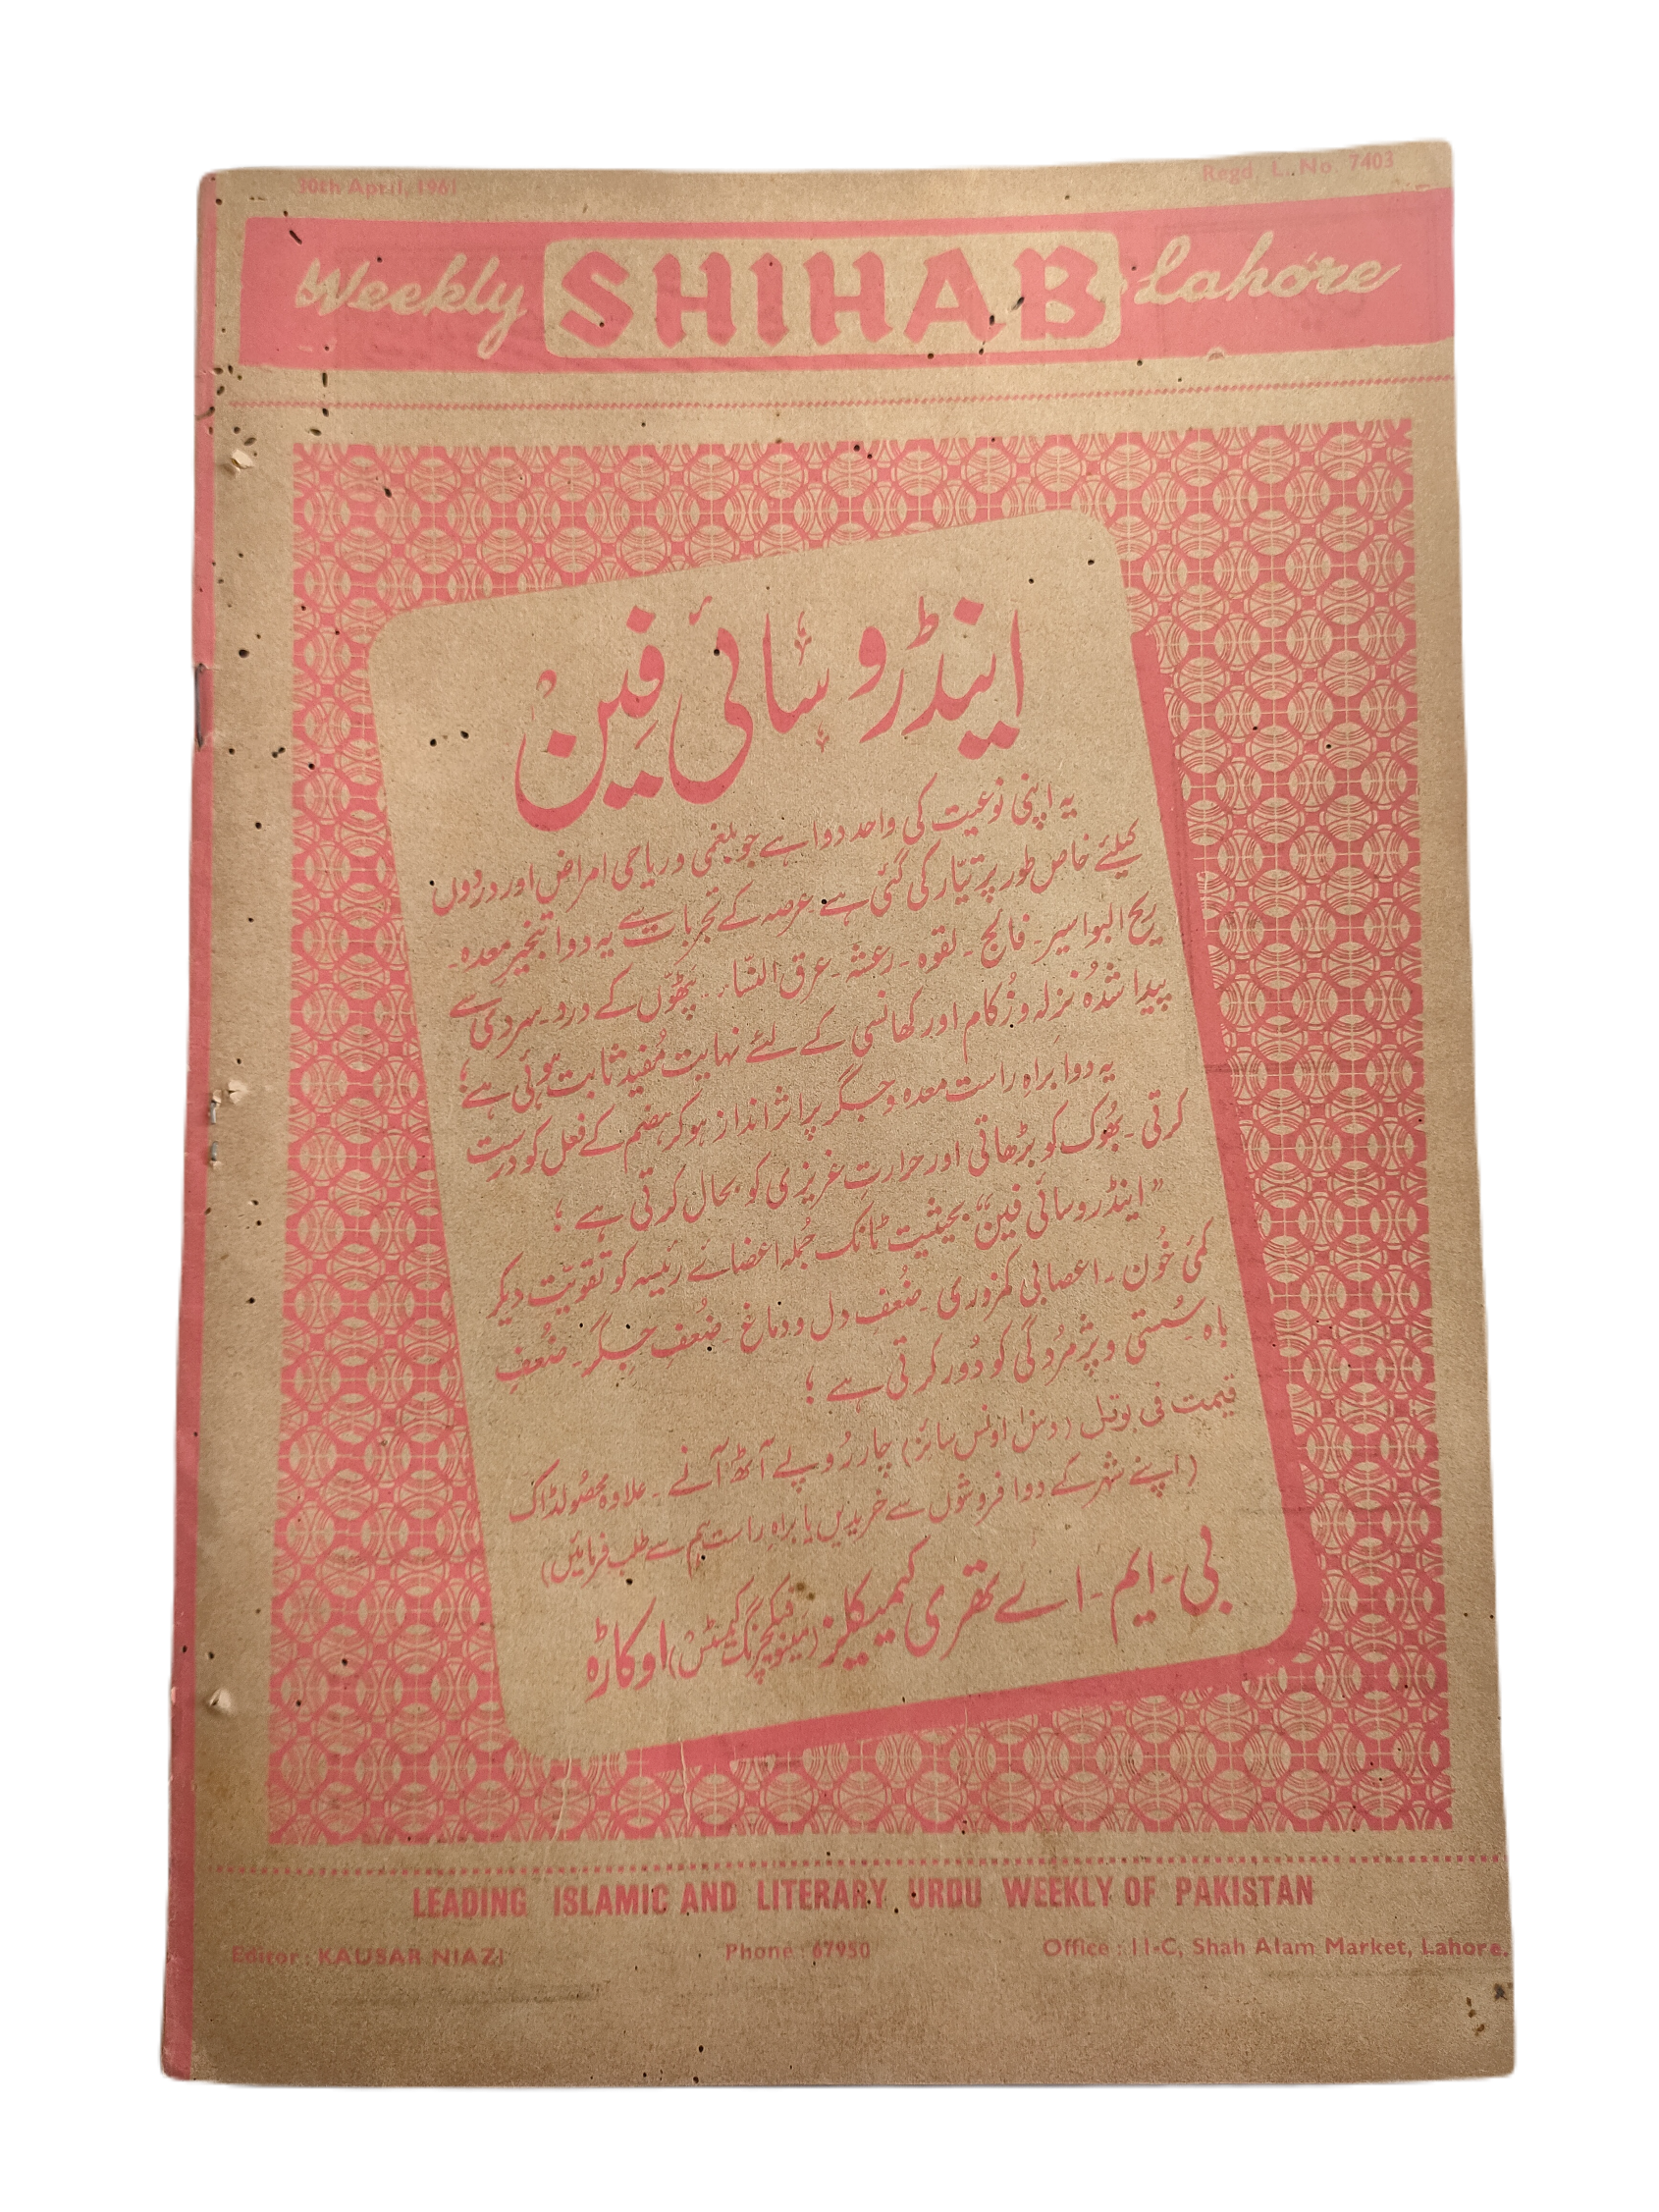 30th April, 1961 Regd. L. No. 7403
Weekly SHIHAB Lahore
اینڈروسائی فین
یہ اپنی نوعیت کی واحد دوا ہے جو بلغمی و ریاحی امراض اور دردوں
کیلئے خاص طور پر تیار کی گئی ہے عرصہ کے تجربات سے یہ دوا تبخیر معدہ۔
ریح البواسیر۔ فالج۔ لقوہ۔ رعشہ۔ عرق النسا۔ پٹھوں کے درد۔ سردی سے
پیدا شدہ نزلہ و زکام اور کھانسی کے لئے نہایت مفید ثابت ہوئی ہے؛
یہ دوا براہِ راست معدہ و جگر پر اثر انداز ہو کر ہضم کے فعل کو درست
کرتی۔ بھوک کو بڑھاتی اور حرارتِ غریزی کو بحال کرتی ہے؛
”اینڈروسائی فین“ بحیثیت ٹانک جملہ اعضائے رئیسہ کو تقویت دیکر
کمئ خون۔ اعصابی کمزوری۔ ضعفِ دل و دماغ۔ ضعفِ جگر۔ ضعفِ
باہ۔ سستی و پژمردگی کو دور کرتی ہے؛
قیمت فی بوتل (دس اونس سائز) چار روپے آٹھ آنے۔ علاوہ محصولڈاک
(اپنے شہر کے دوا فروشوں سے خریدیں یا براہ راست ہم سے طلب فرمائیں)
بی۔ ایم۔ اے تھری کیمیکلز (مینوفیکچرنگ کیمسٹس) اوکاڑہ
LEADING ISLAMIC AND LITERARY URDU WEEKLY OF PAKISTAN
Editor : KAUSAR NIAZI Phone : 67950 Office : 11-C, Shah Alam Market, Lahore.